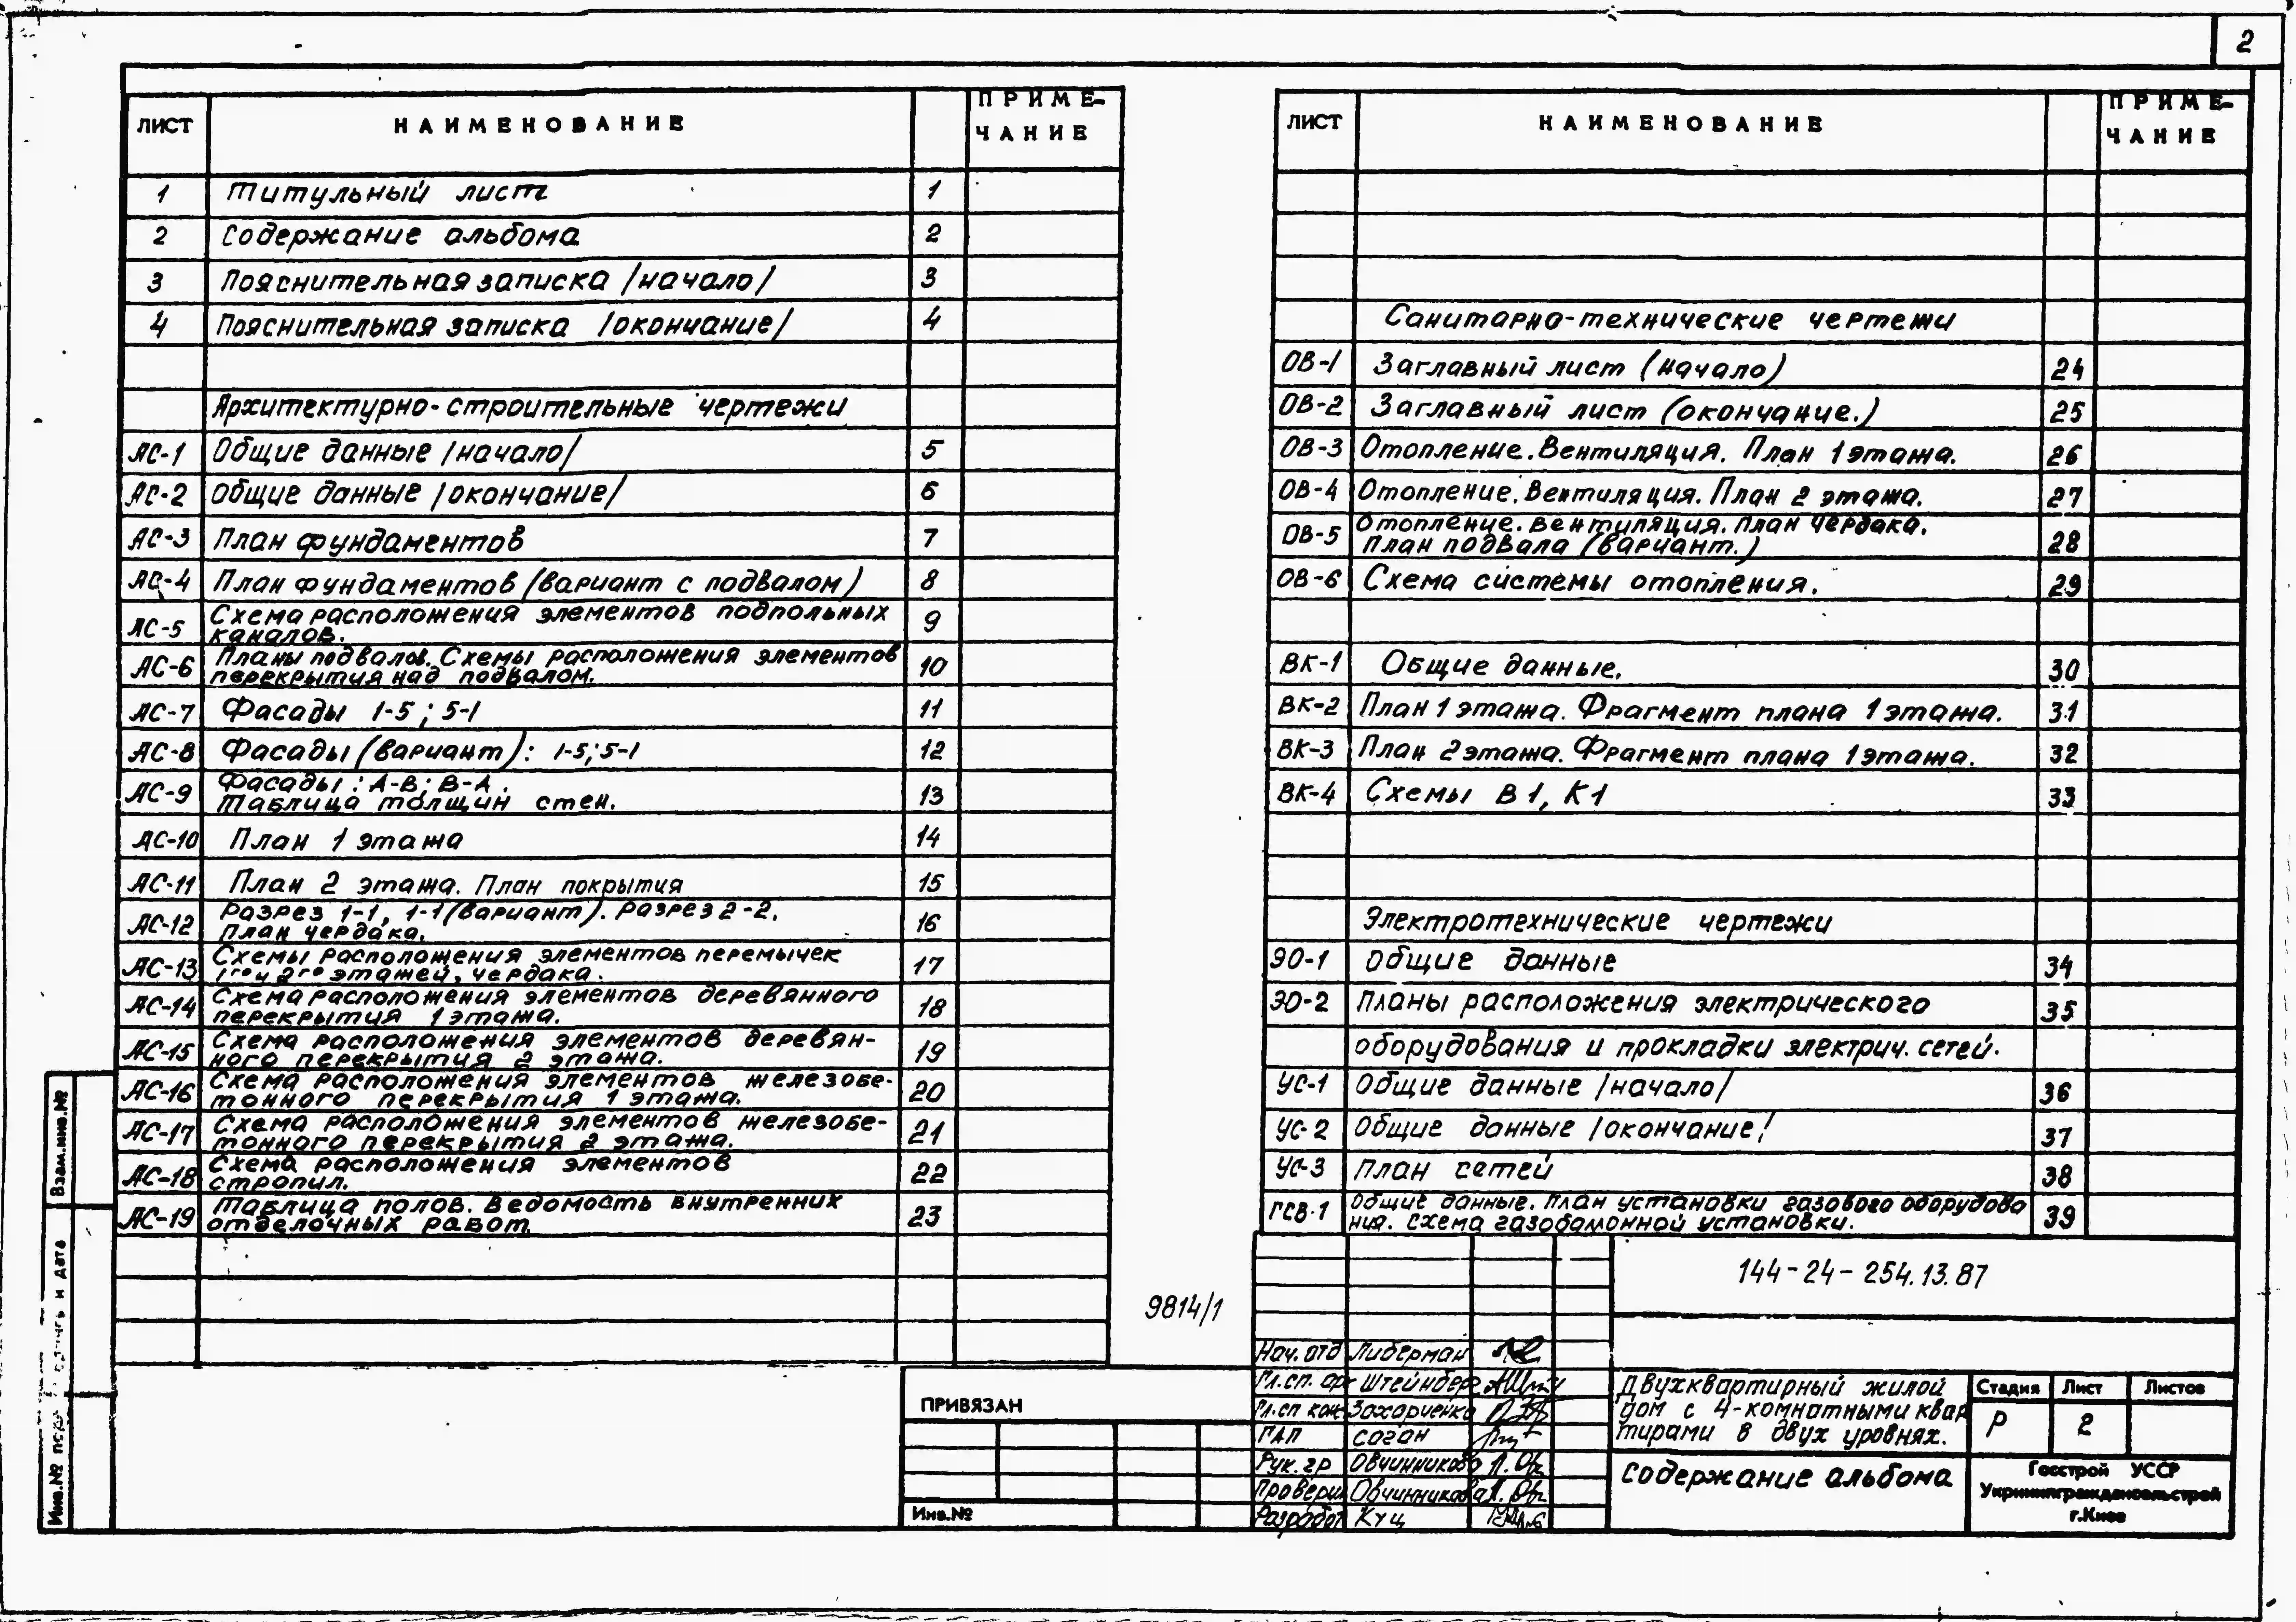 2
ЛИСТ НАИМЕНОВАНИЕ ПРИМЕ-
ЧАНИЕ
1 Титульный лист 1
2 Содержание альбома 2
3 Пояснительная записка /начало/ 3
4 Пояснительная записка /окончание/ 4
Архитектурно-строительные чертежи
АС-1 Общие данные /начало/ 5
АС-2 Общие данные /окончание/ 6
АС-3 План фундаментов 7
АС-4 План фундаментов (вариант с подвалом) 8
АС-5 Схема расположения элементов подпольных 9
каналов.
АС-6 Планы подвалов. Схемы расположения элементов 10
перекрытия над подвалом.
АС-7 Фасады 1-5; 5-1 11
АС-8 Фасады (вариант): 1-5; 5-1 12
АС-9 Фасады: А-В; В-А. 13
Таблица толщин стен.
АС-10 План 1 этажа 14
АС-11 План 2 этажа. План покрытия 15
АС-12 Разрез 1-1, 1-1 (вариант). Разрез 2-2. 16
План чердака.
АС-13 Схемы расположения элементов перемычек 17
1го и 2го этажей, чердака.
АС-14 Схема расположения элементов деревянного 18
перекрытия 1 этажа.
АС-15 Схема расположения элементов деревян- 19
ного перекрытия 2 этажа.
АС-16 Схема расположения элементов железобе- 20
тонного перекрытия 1 этажа.
АС-17 Схема расположения элементов железобе- 21
тонного перекрытия 2 этажа.
АС-18 Схема расположения элементов 22
стропил.
АС-19 Таблица полов. Ведомость внутренних 23
отделочных работ.
ЛИСТ НАИМЕНОВАНИЕ ПРИМЕ-
ЧАНИЕ
Санитарно-технические чертежи
ОВ-1 Заглавный лист (начало) 24
ОВ-2 Заглавный лист (окончание.) 25
ОВ-3 Отопление. Вентиляция. План 1 этажа. 26
ОВ-4 Отопление. Вентиляция. План 2 этажа. 27
ОВ-5 Отопление. Вентиляция. План чердака. 28
План подвала (вариант.)
ОВ-6 Схема системы отопления. 29
ВК-1 Общие данные. 30
ВК-2 План 1 этажа. Фрагмент плана 1 этажа. 31
ВК-3 План 2 этажа. Фрагмент плана 1 этажа. 32
ВК-4 Схемы В1, К1 33
Электротехнические чертежи
ЭО-1 Общие данные 34
ЭО-2 Планы расположения электрического 35
оборудования и прокладки электрич. сетей.
УС-1 Общие данные /начало/ 36
УС-2 Общие данные /окончание/ 37
УС-3 План сетей 38
ГСВ-1 Общие данные. План установки газового оборудова 39
ния. Схема газобаллонной установки.
9814/1
144-24-254.13.87
Нач. отд Либерман
Гл.сп. арх Штейнберг
Гл.сп кон Захарченко
ГАП Соган
Рук. гр Овчинникова
Проверил Овчинникова
Разработ Куц
Двухквартирный жилой
дом с 4-комнатными квар
тирами в двух уровнях.
Стадия Лист Листов
Р 2
Содержание альбома
Госстрой УССР
Укрниипграждансельстрой
г.Киев
ПРИВЯЗАН
Инв.№
Взам.инв.№
Подпись и дата
Инв.№ подл